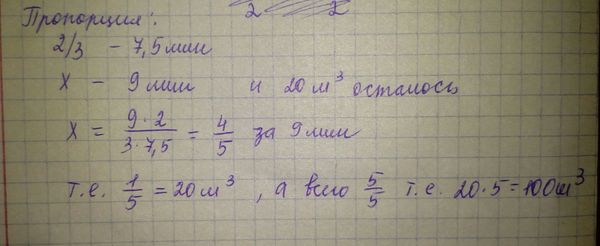 Пропорция:
2/3 - 7,5 мин
x - 9 мин и 20 м³ осталось
x = 9·2 / 3·7,5 = 4/5 за 9 мин
т.е. 1/5 = 20 м³, а всего 5/5 т.е. 20·5=100 м³